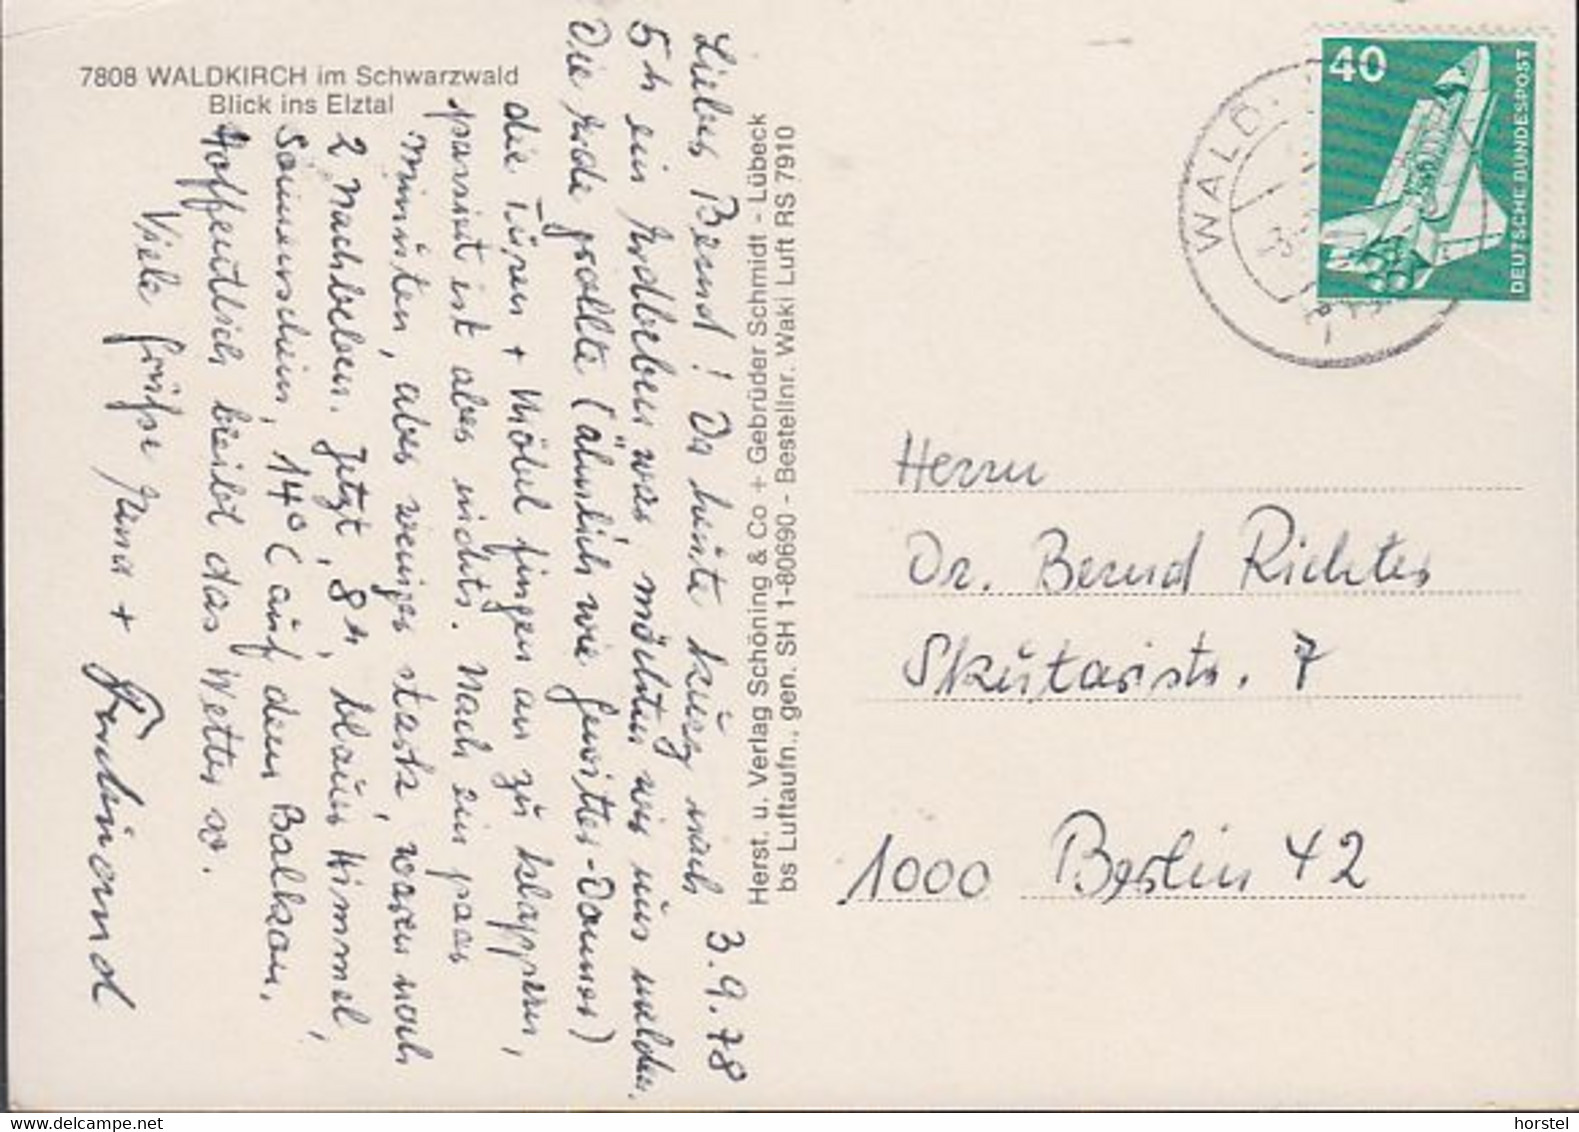 7808 WALDKIRCH im Schwarzwald
Blick ins Elztal
3.9.78
Lieber Bernd! Da heute kurz nach
5 h ein Erdbeben war, möchten wir uns melden.
Die Erde grollte (ähnlich wie Gewitter-Donner)
die Türen + Möbel fingen an zu klappern,
passiert ist aber nichts. Nach ein paar
Minuten, aber weniger stark, waren noch
2 Nachbeben. Jetzt, 8 h, blauer Himmel,
Sonnenschein, 14° (auf dem Balkon.
Hoffentlich bleibt das Wetter so.
Viele Grüße +
Ferdinand
Herst. u. Verlag Schöning & Co + Gebrüder Schmidt - Lübeck
bs Luftaufn., gen. SH 1-80690 - Bestellnr. Waki Luft RS 7910
40
DEUTSCHE BUNDESPOST
WALD
Herrn
Dr. Bernd Richter
Skutaristr. 7
1000 Berlin 42
horstel